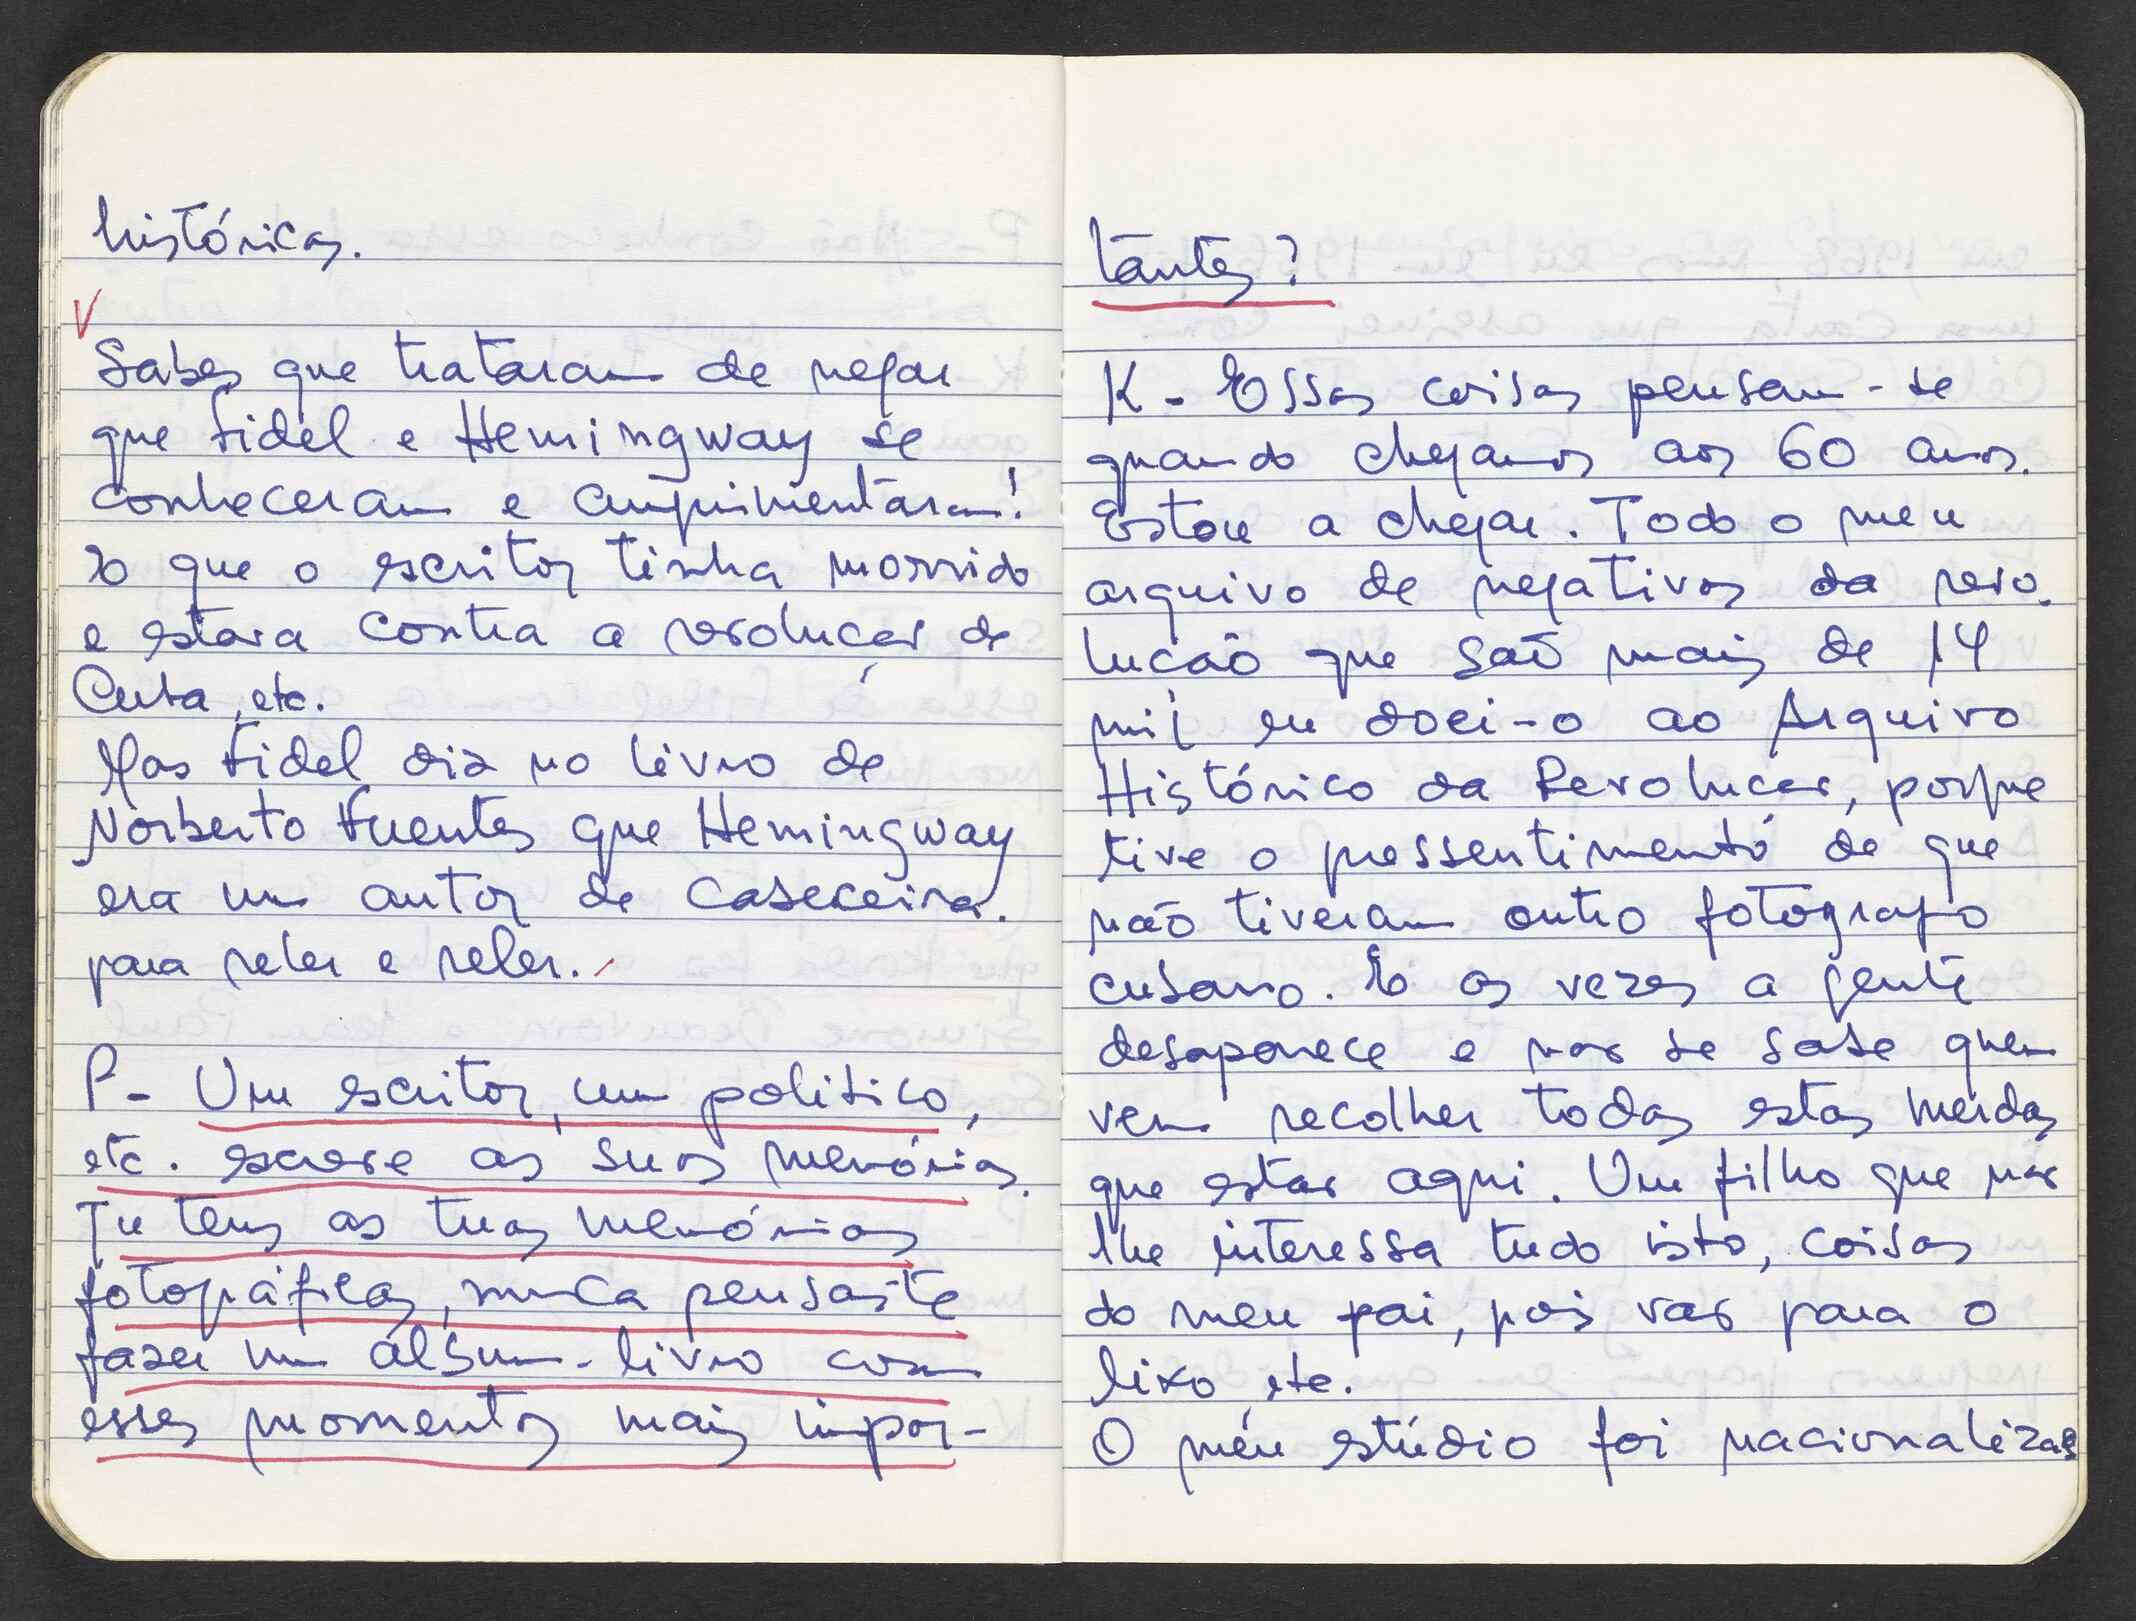 históricas.
Sabes que trataram de negar
que Fidel e Hemingway se
conheceram e cumprimentaram!
E que o escritor tinha morrido
e estava contra a revolução de
Cuba, etc.
Mas Fidel diz no livro de
Norberto Fuentes que Hemingway
era um autor de cabeceira.
para reler e reler.
P- Um escritor, um político,
etc. escreve as suas memórias.
Tu tens as tuas memórias
fotográficas, nunca pensaste
fazer um álbum-livro com
esses momentos mais impor-
tantes?
K- Essas coisas pensam-se
quando chegamos aos 60 anos.
Estou a chegar. Todo o meu
arquivo de negativos da revo-
lução que são mais de 14
mil eu doei-o ao Arquivo
Histórico da Revolução, porque
tive o pressentimento de que
não tiveram outro fotografo
cubano. E as vezes a gente
desaparece e não se sabe quem
vem recolher todas estas merdas
que estão aqui. Um filho que não
lhe interessa tudo isto, coisas
do meu pai, pois vão para o
lixo, etc.
O meu estúdio foi nacionalizado